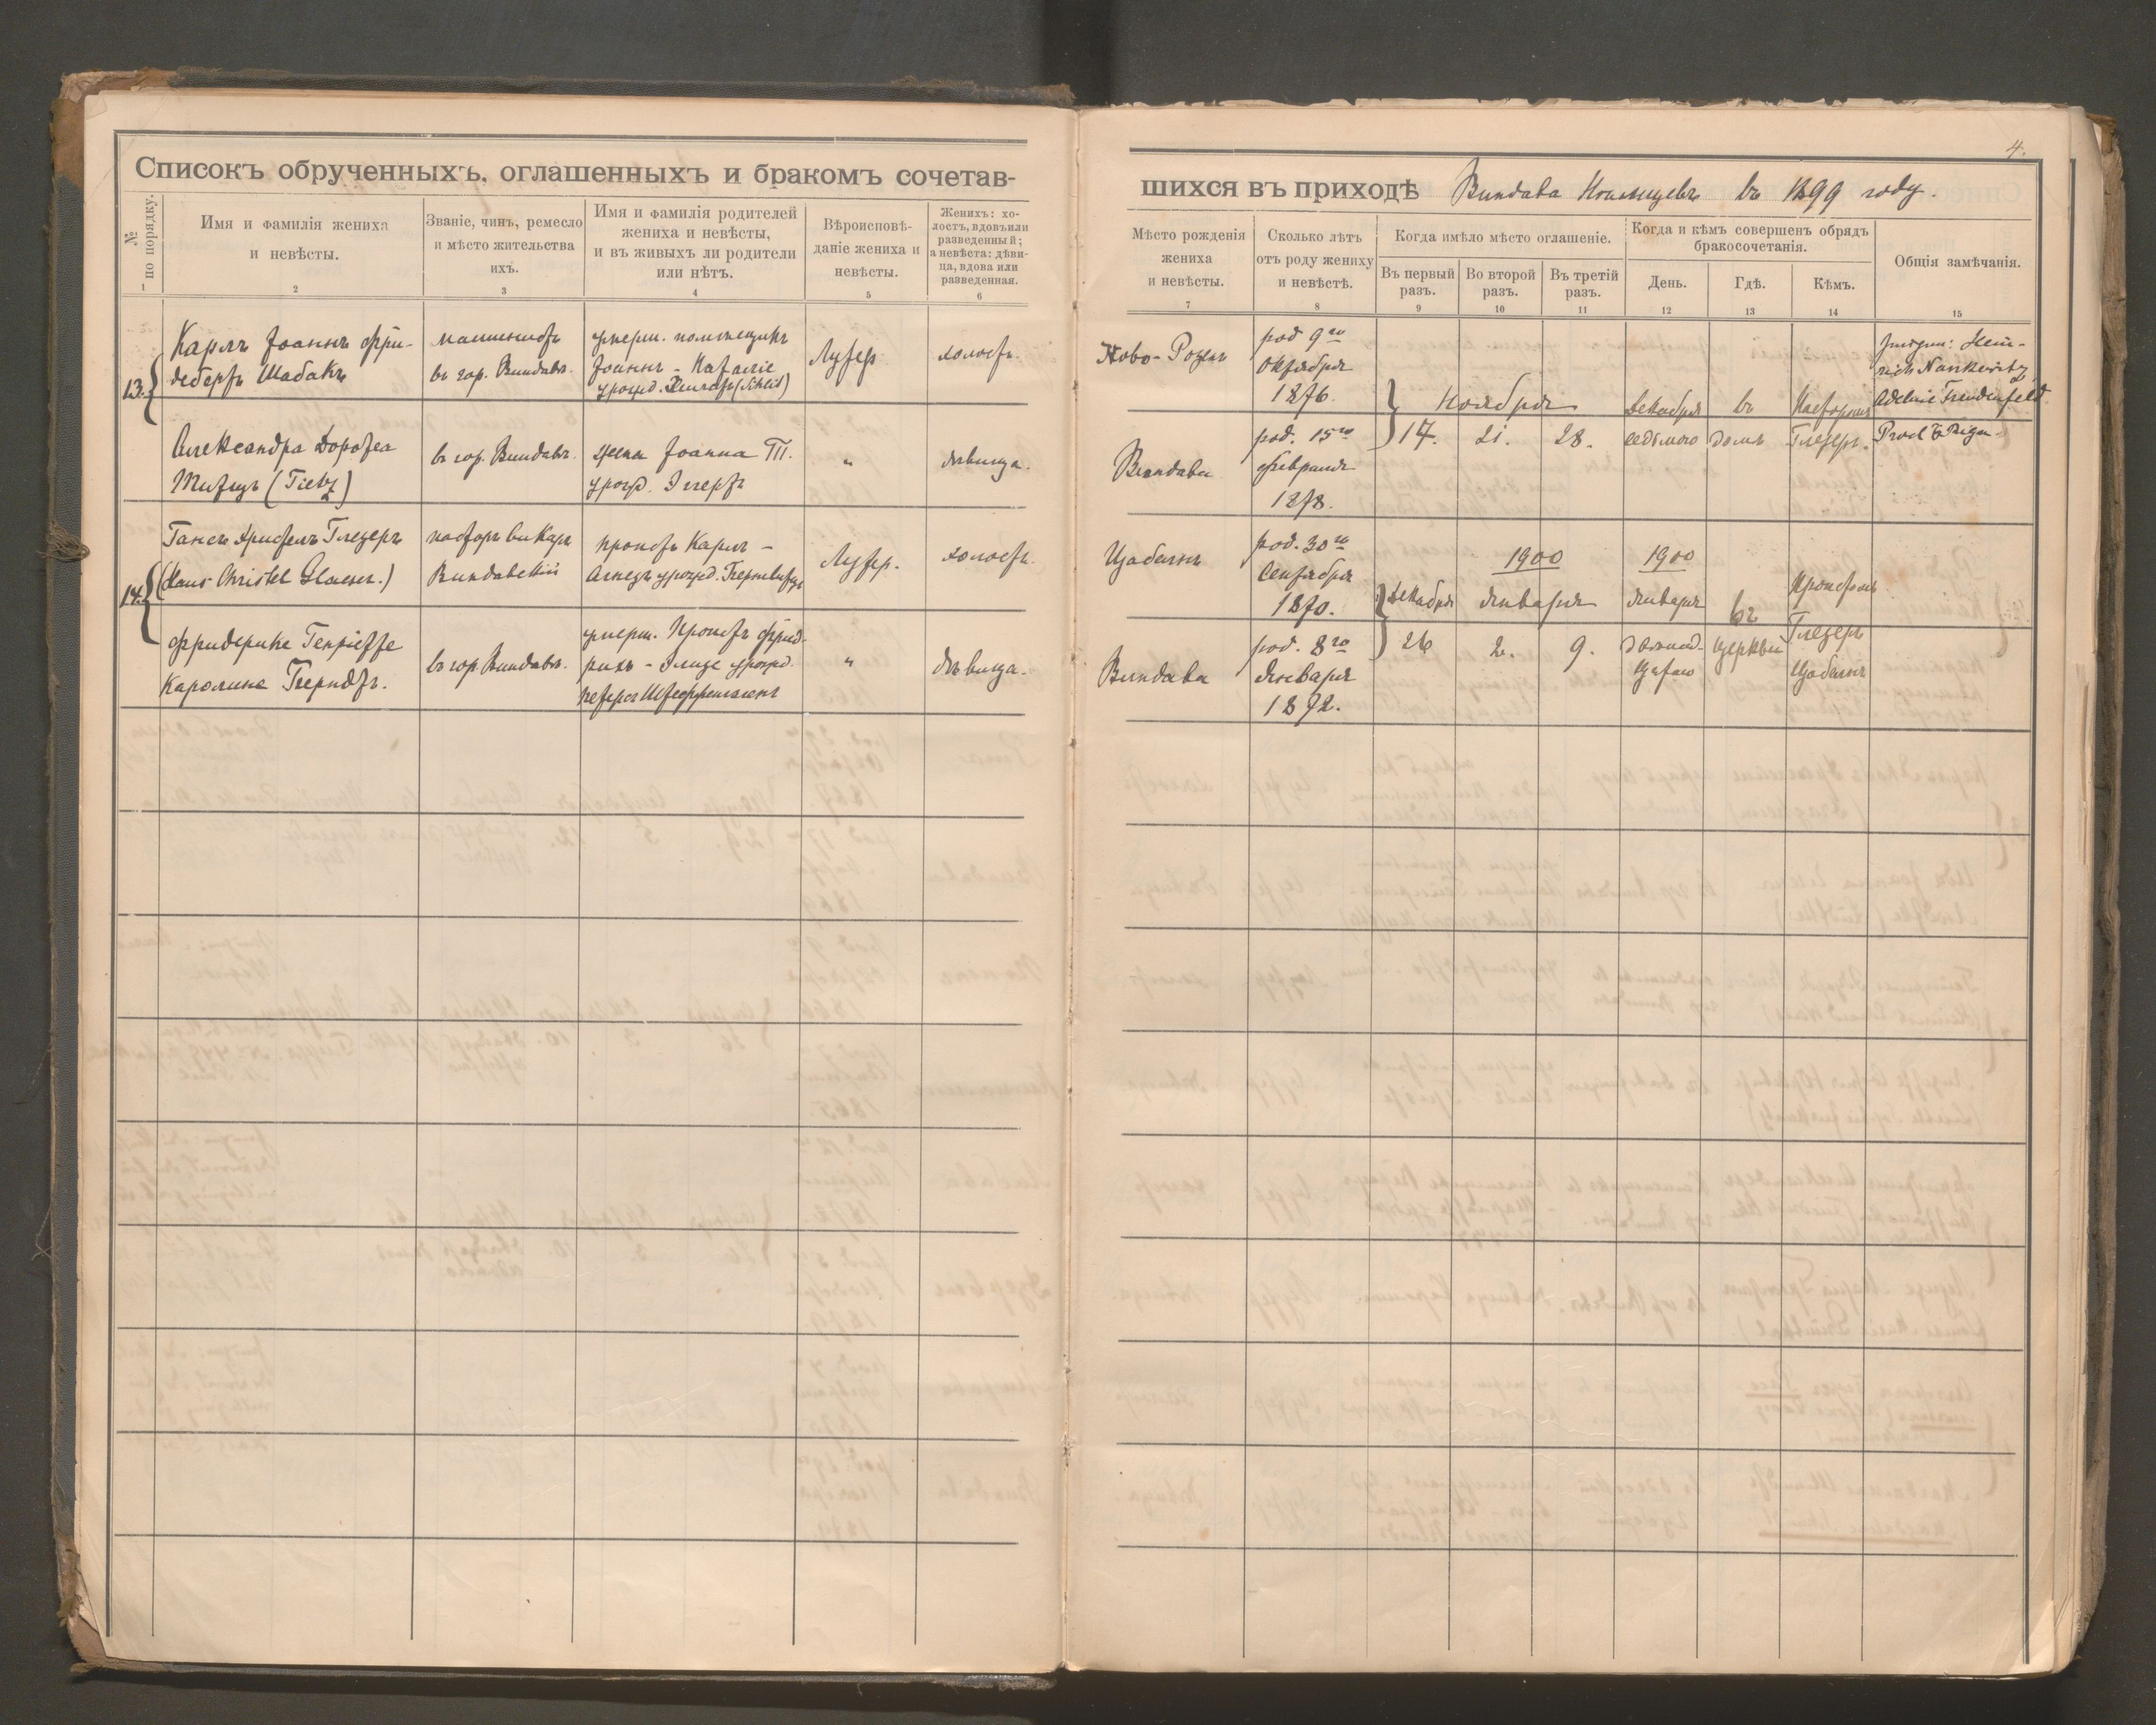 4.
Списокъ обрученныхъ, оглашенныхъ и бракомъ сочетав-
шихся въ приходѣ Виндава Нѣмцевъ въ 1899 году.
№ по порядку.
Имя и фамилія жениха
и невѣсты.
Званіе, чинъ, ремесло
и мѣсто жительства
ихъ.
Имя и фамилія родителей
жениха и невѣсты,
и въ живыхъ ли родители
или нѣтъ.
Вѣроисповѣ-
даніе жениха и
невѣсты.
Женихъ: хо-
лостъ, вдовъ или
разведенный;
а невѣста: дѣви-
ца, вдова или
разведенная.
Мѣсто рожденія
жениха
и невѣсты.
Сколько лѣтъ
отъ роду жениху
и невѣстѣ.
Когда имѣло мѣсто оглашеніе.
Въ первый
разъ.
Во второй
разъ.
Въ третій
разъ.
Когда и кѣмъ совершенъ обрядъ
бракосочетанія.
День.
Гдѣ.
Кѣмъ.
Общія замѣчанія.
1 2 3 4 5 6 7 8 9 10 11 12 13 14 15
13.
Карлъ Іоаннъ Фри-
дебертъ Шабакъ
машинистъ
въ гор. Виндавѣ.
умерш. помѣщикъ
Іоаннъ - Наталіе
урожд.
Лутер.
холостъ.
Ново-
род 9го
Октября
1876.
Ноября
17. 21. 28.
Декабря
седьмого
въ
домѣ
Пасторомъ
Глезеръ.
Hein-
rich Nankewitz
Adeline Freudenfeld
Procl. Riga
Александра Доротеа
Титцъ (Tietz)
въ гор. Виндавѣ.
Іоанна Т.
урожд.
"
дѣвица.
Виндава
род. 15го
февраля
1878.
14.
Гансъ Христелъ Глезеръ
(Hans Christel Glaeser.)
пасторъ викаръ
Виндавскій
Пропстъ Карлъ -
Агнесъ урожд.
Лутер.
холостъ.
Цабельнъ
род. 30го
Сентября
1870.
1900
1900
Декабря
Января
Января
26
2.
9.
двѣнад-
цатаго
въ
церкви
Пропстомъ
Глезеръ
Цабельнъ
Фридерике Генріетте
Каролине Берндтъ.
въ гор. Виндавѣ.
умерш. Пропстъ Фрид-
рихъ - Элизе урожд.
"
дѣвица.
Виндава
род. 8го
Января
1872.